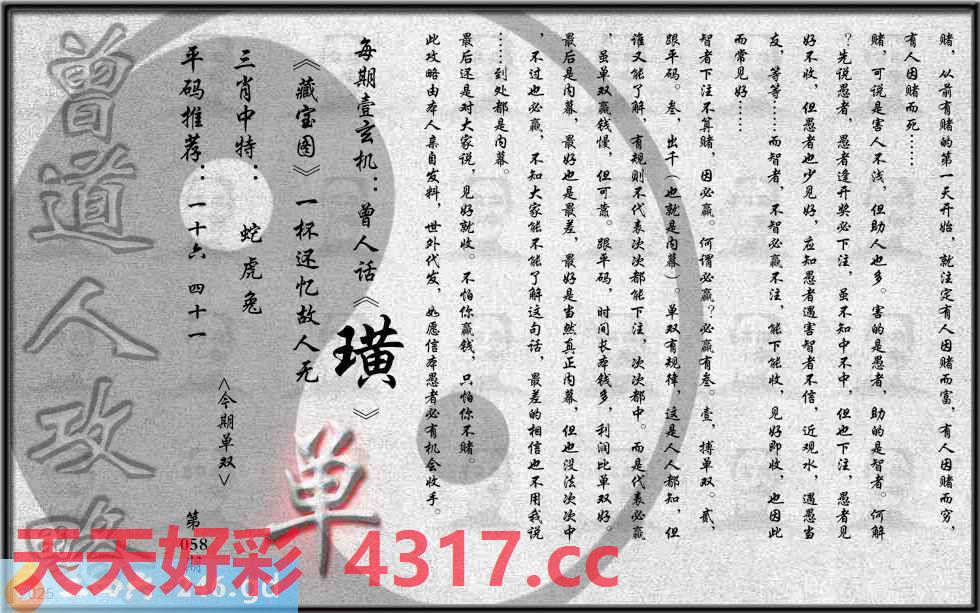 赌，从前有赌的第一天开始，就注定有人因赌而富，有人因赌而穷，
有人因赌而死……
赌，可说是害人不浅，但助人也多。害的是愚者，助的是智者。何解
？先说愚者，愚者逢开奖必下注，虽不知中不中，但也下注，愚者见
好不收，但愚者也少见好，应知愚者遇害智者不信，近观水，遇愚当
友，等等……而智者，不智必赢不注，能下能收，见好即收，也因此
而常见好……
智者下注不算赌，因必赢。何谓必赢？必赢有叁。壹，搏单双。贰，
跟平码。叁，出千（也就是内幕）。单双有规律，这是人人都知，但
谁又能了解，有规则不代表次次都能下注，次次都中。而是代表必赢
，虽单双赢钱慢，但可靠。跟平码，时间长本钱多，利润比单双好。
最后是内幕，最好也是最差，最好是当然真正内幕，但也没法次次中
，不过也必赢，不知大家能不能了解这句话，最差的相信也不用我说
……到处都是内幕。
最后还是对大家说，见好就收。不怕你赢钱，只怕你不赌。
此攻略由本人亲自发料，世外代发，如愿信本愚者必有机会收手。
每期壹玄机：曾人话《璜》
《藏宝图》一杯还忆故人无
三肖中特：蛇虎兔
平码推荐：一十六 四十一
<今期单双>
单
第
058
期
曾道人攻略
天天好彩 4317.cc
246.gd
2025